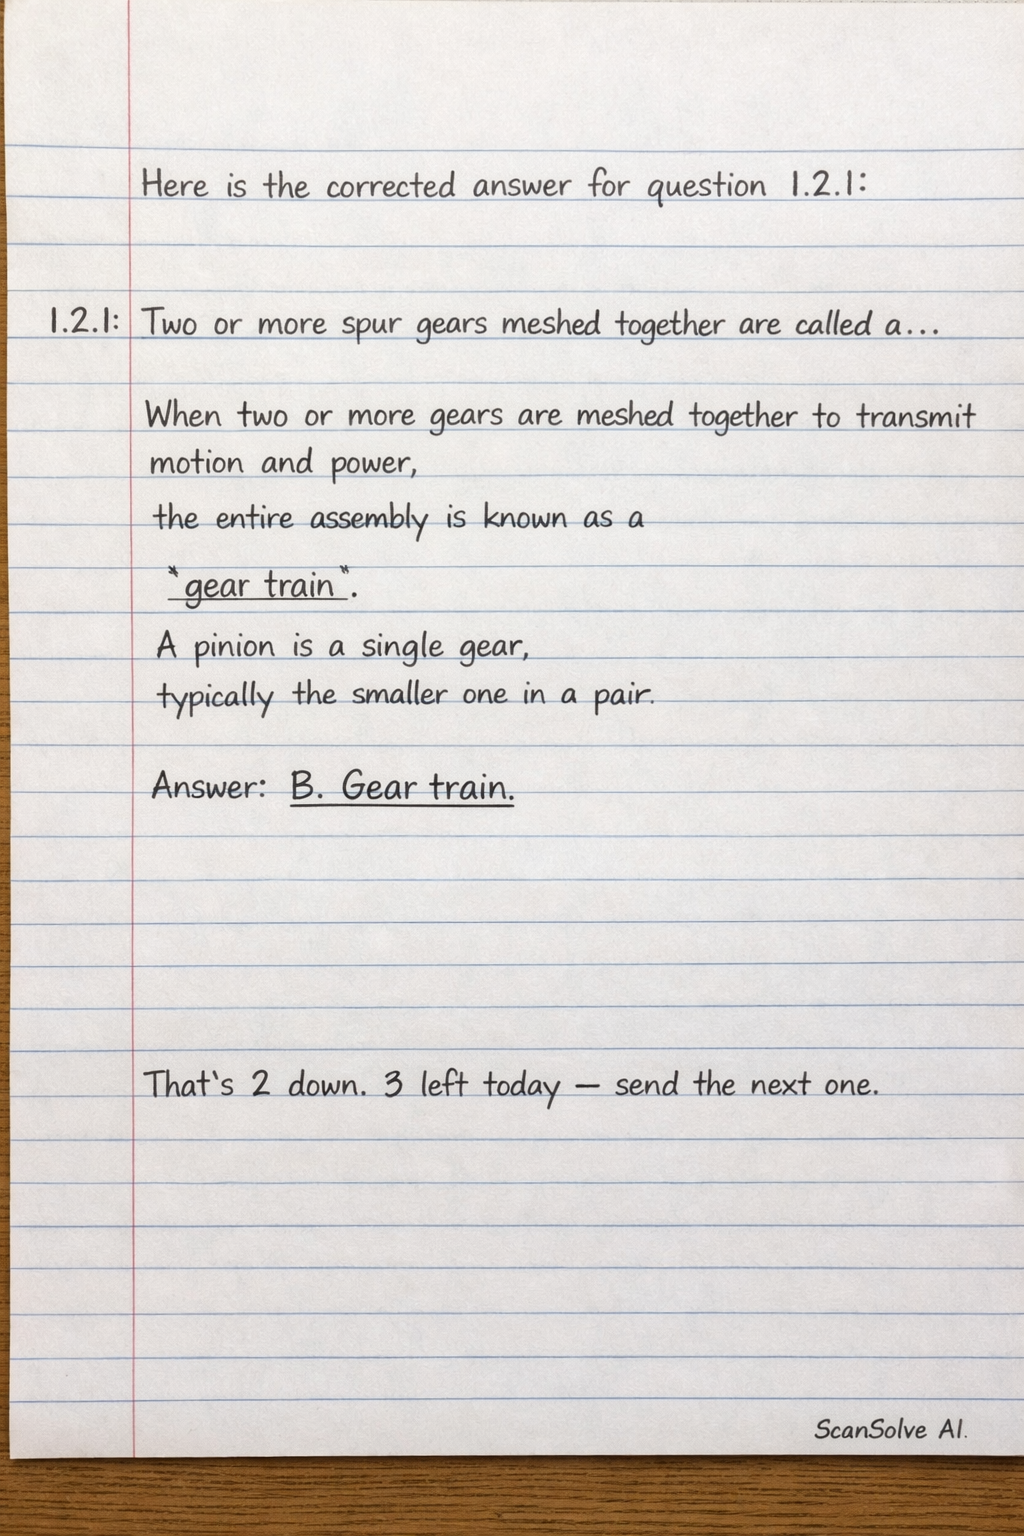 Here is the corrected answer for question 1.2.1:
1.2.1: Two or more spur gears meshed together are called a...
When two or more gears are meshed together to transmit
motion and power,
the entire assembly is known as a
"gear train".
A pinion is a single gear,
typically the smaller one in a pair.
Answer: B. Gear train.
That's 2 down. 3 left today — send the next one.
ScanSolve AI.